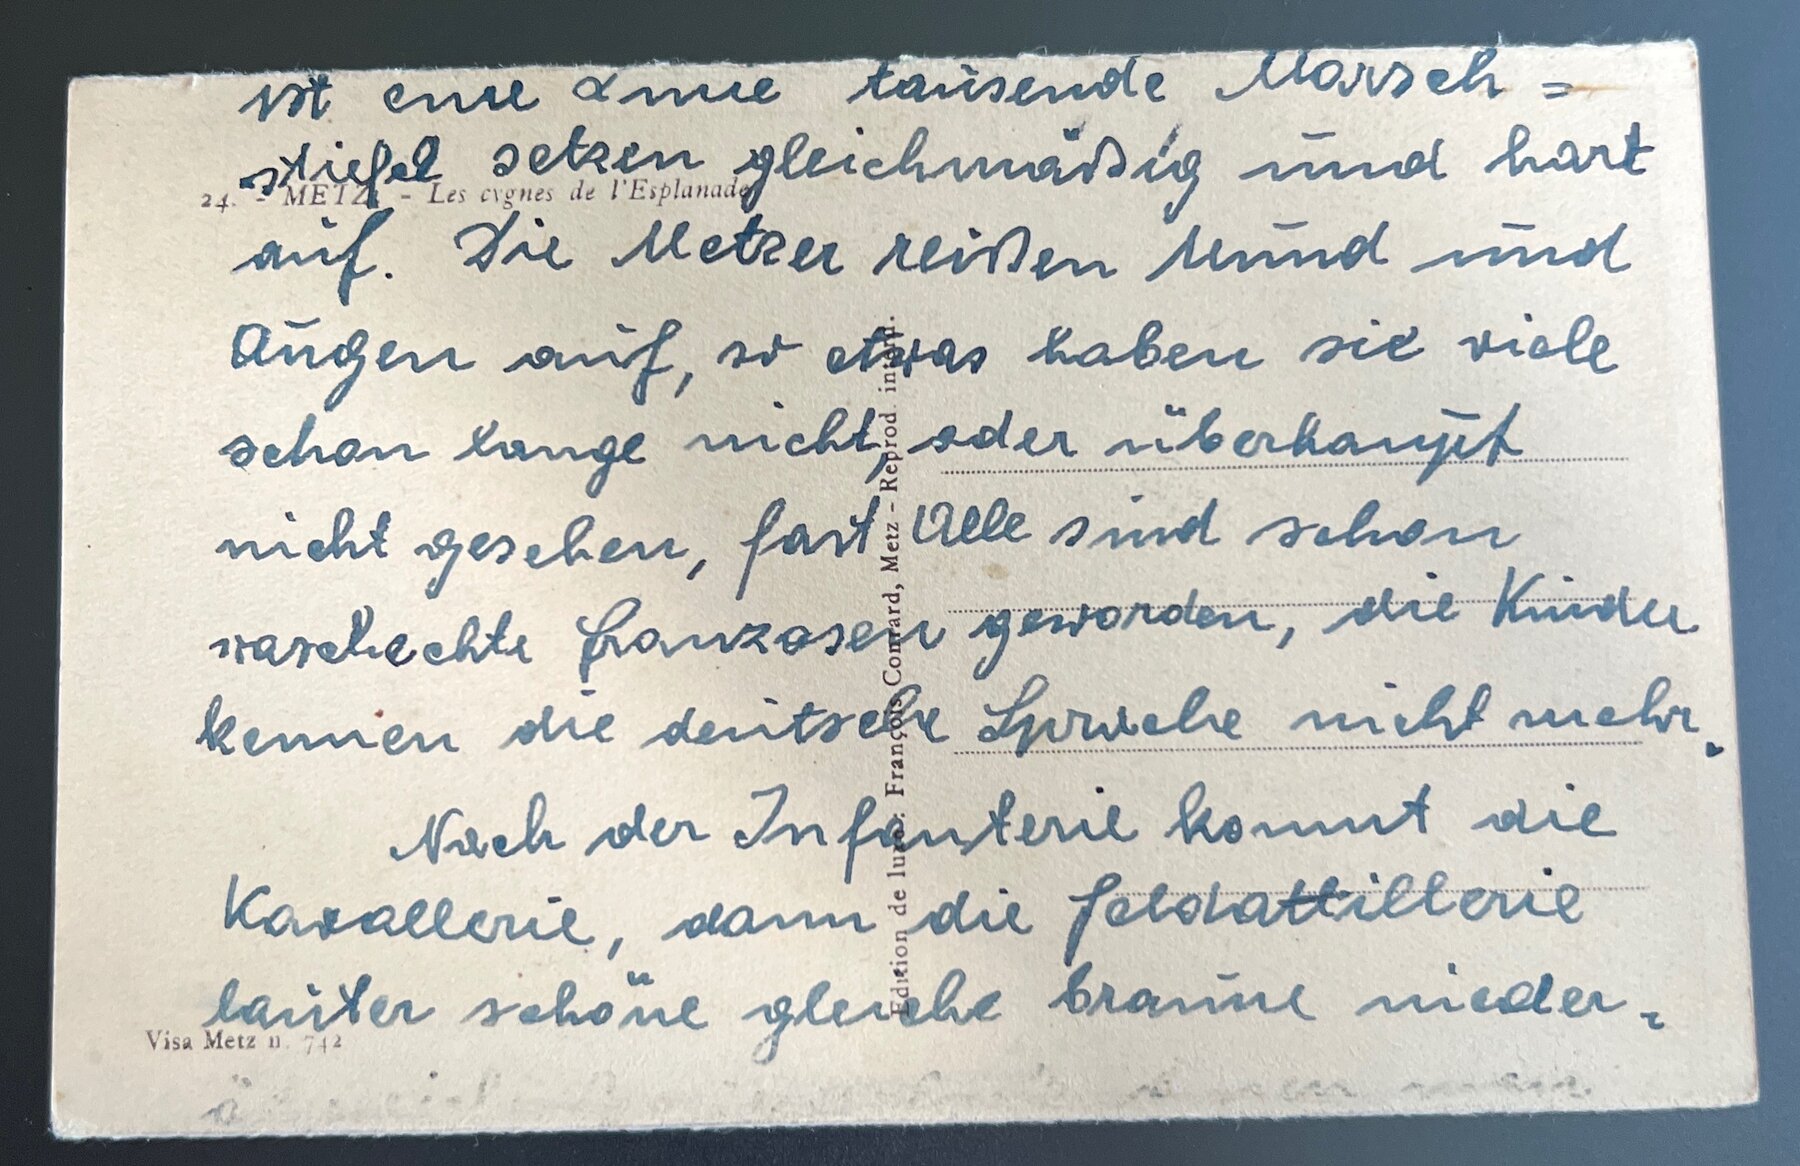 ist eine Linie tausende Marsch=
stiefel setzen gleichmäßig und hart
24. - METZ. - Les cygnes de l'Esplanade
auf. Die Metzer reißen Mund und
Augen auf, so etwas haben sie viele
schon lange nicht, oder überhaupt
nicht gesehen, fast Alle sind schon
waschechte Franzosen geworden, die Kinder
kennen die deutsche Sprache nicht mehr.
Nach der Infanterie kommt die
Kavallerie, dann die Feldattillerie
lauter schöne gleiche braune nieder-
Visa Metz n. 742
Edition de luxe. François Conrard, Metz - Reprod interd.